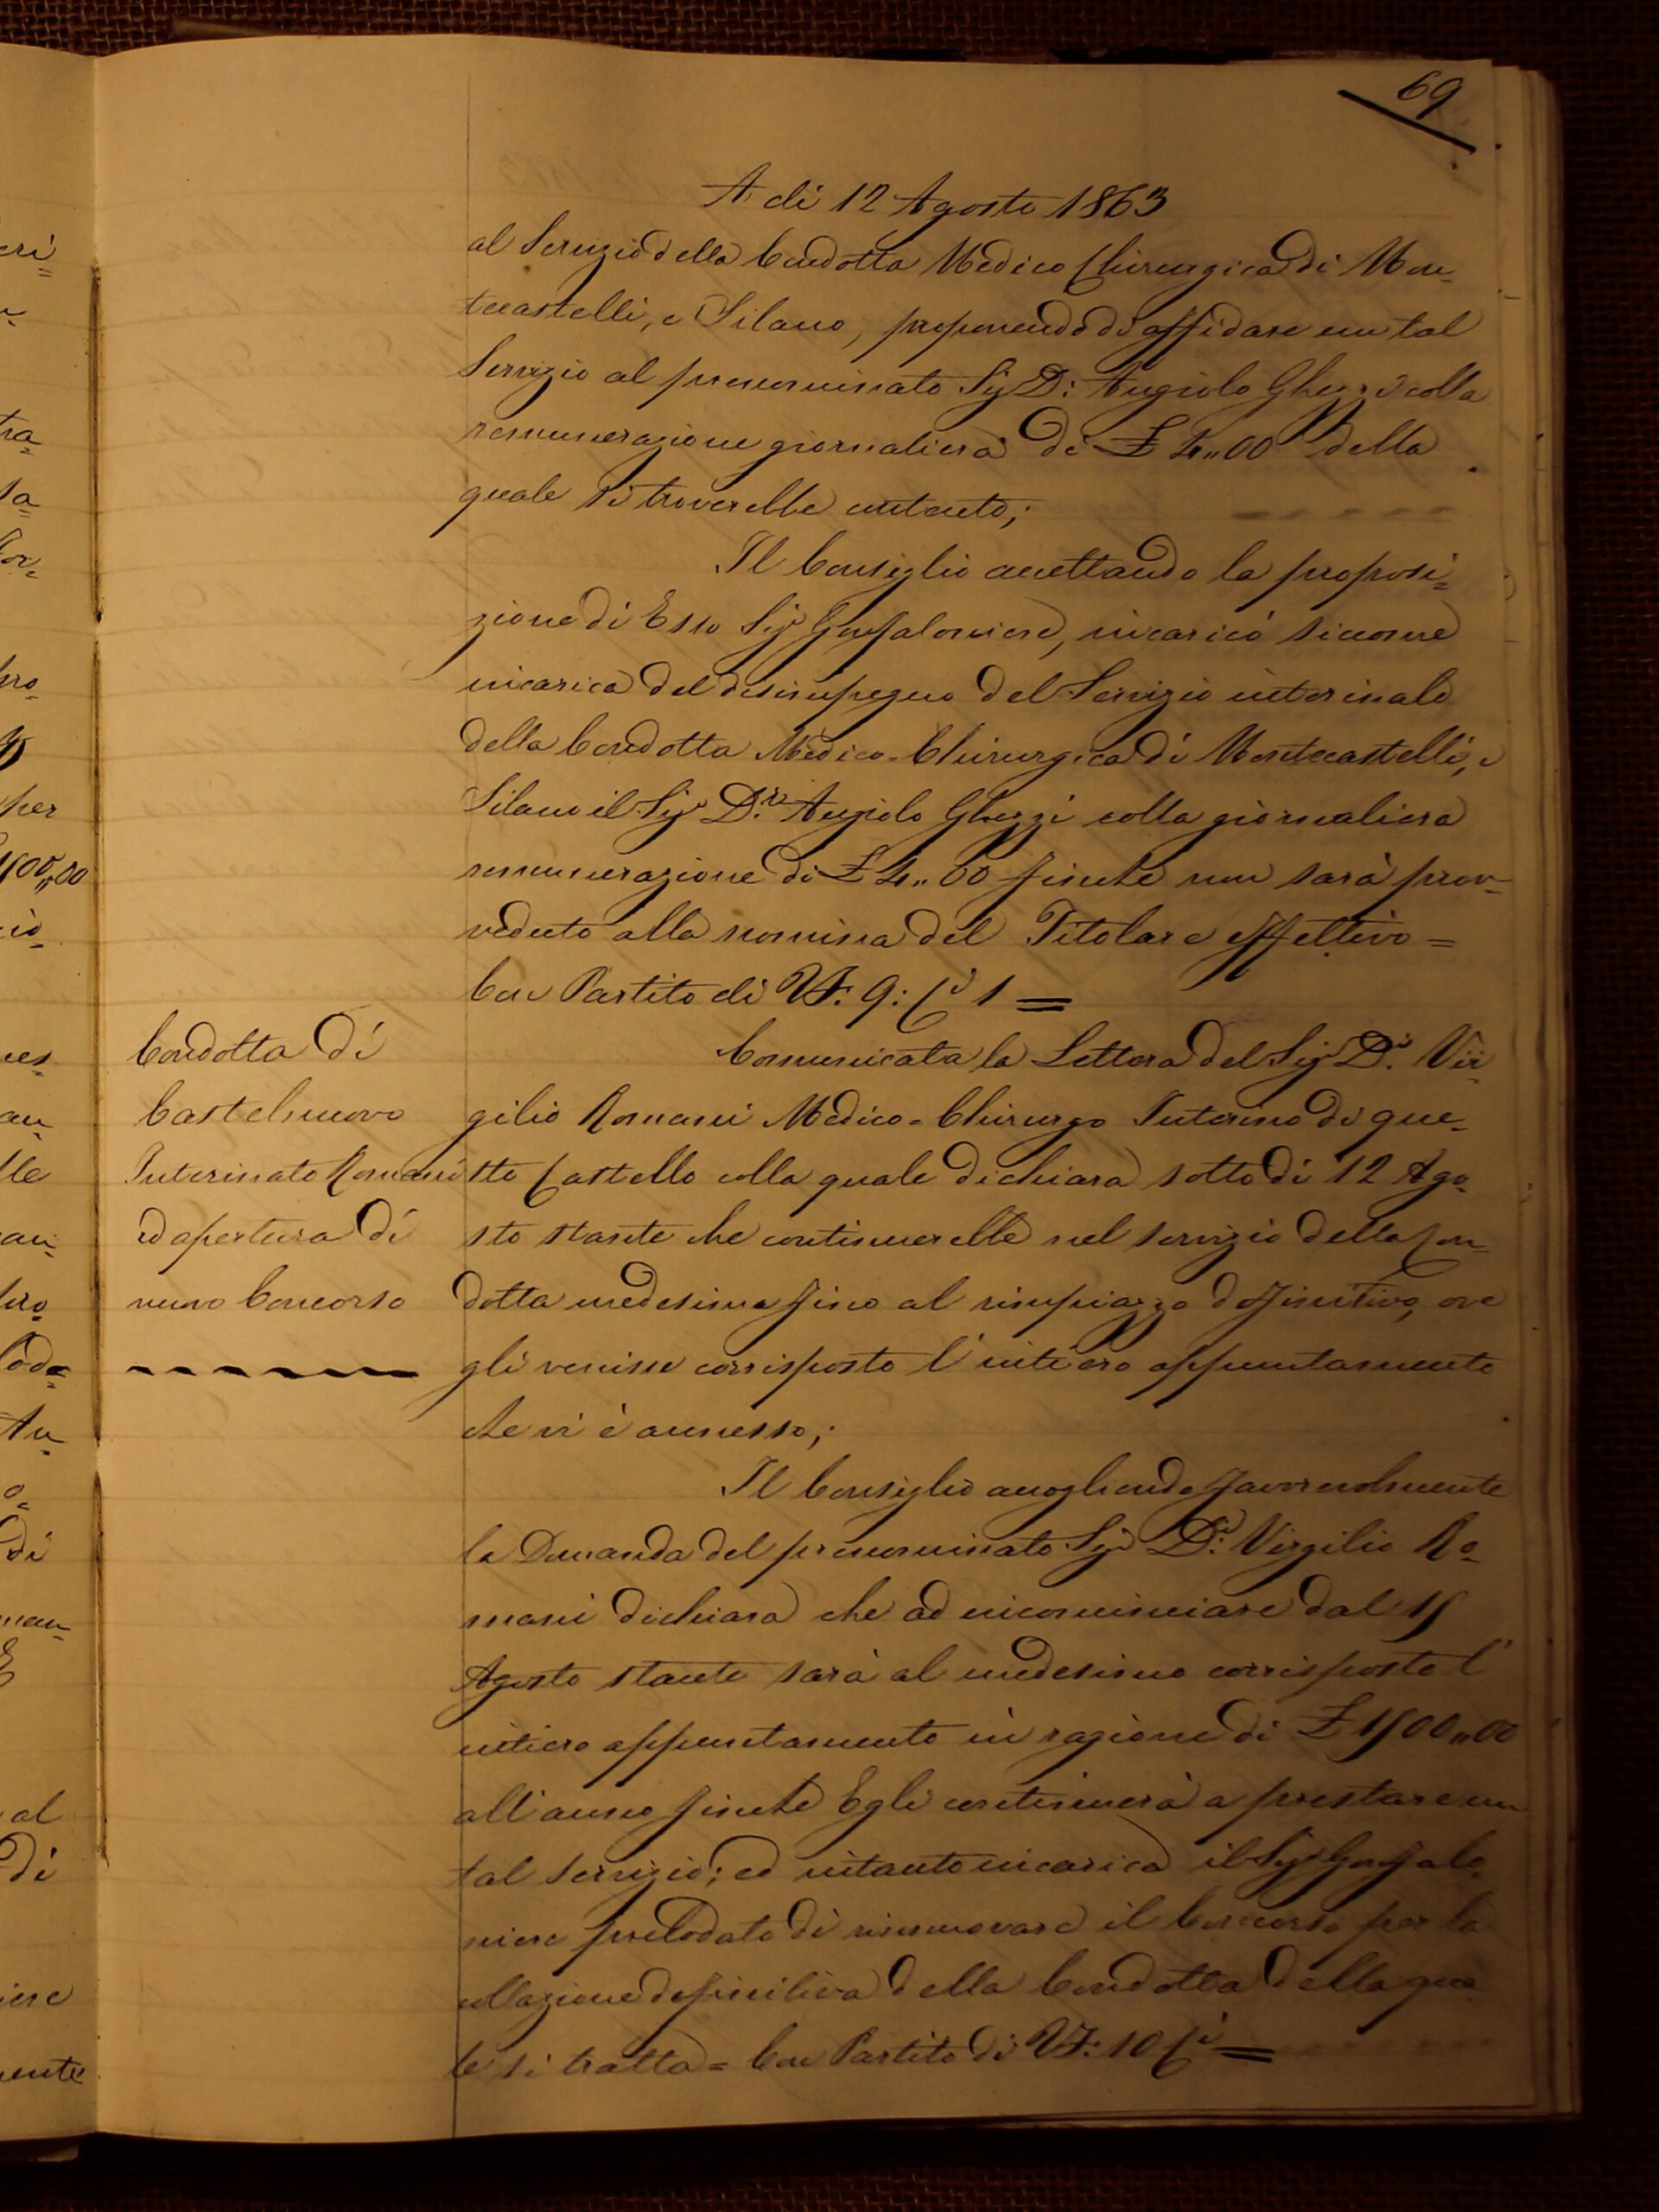 69
A di 12 Agosto 1863
al Servizio della Condotta Medico Chirurgica di Mon-
tecastelli, e Silano, proponendo di affidare un tal
Servizio al prenominato Sig. D: Angiolo Ghezzi colla
remunerazione giornaliera di £ 4,,00 della
quale si troverebbe contento;
Il Consiglio accettando la proposi=
zione di Esso Sigr Gonfaloniere, incaricò siccome
incarica del disimpegno del Servizio interinale
della Condotta Medico-Chirurgica di Montecastelli, e
Silano il Sigr D.r Angiolo Ghezzi colla giornaliera
remunerazione di £ 4,,00 finchè non sarà prov-
veduto alla nomina del Titolare effettivo =
Con Partito di VF: 9: Ci 1 =
Condotta di
Castelnuovo
Interinato Romani
ed apertura di
nuovo Concorso
Comunicata la Lettera del Sigr D.r Vir-
gilio Romani Medico-Chirurgo Interino di que-
sto Castello colla quale dichiara sotto dì 12 Ago-
sto stante che continuerebbe nel servizio della Con-
dotta medesima fino al rimpiazzo definitivo, ove
gli venisse corrisposto l'intiero appuntamento
che vi è annesso;
Il Consiglio accogliendo favorevolmente
la Domanda del prenominato Sigr D.r Virgilio Ro-
mani dichiara che ad incominciare dal 15
Agosto stante sarà al medesimo corrisposto l'
intiero appuntamento in ragione di £ 1500,,00
all'anno finchè Egli continuerà a prestare un
tal servizio; ed intanto incarica il Sigr Gonfalo-
niere prelodato di rinnuovare il Concorso per la
collazione definitiva della Condotta della qua-
le si tratta = Con Partito di VF: 10 Ci =
eri=
tra=
sa=
per
1500,,00
an=
lle
di
al
Di
iere
mente